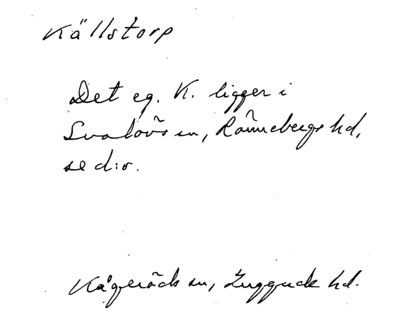 Källstorp
Det eg. K. ligger i
Svalövs sn, Rönnebergs hd,
se d:o.
Kågeröds sn, Luggude hd.